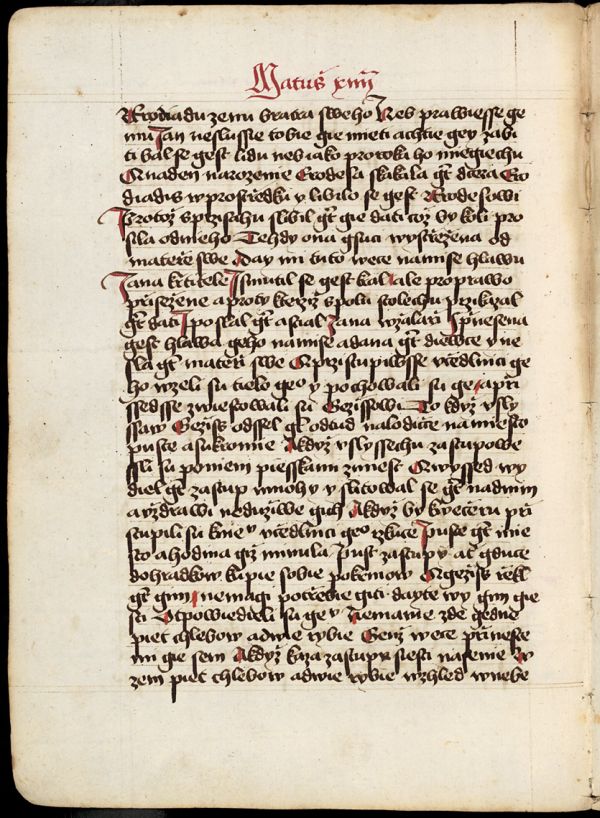 Matus̈ xiiij
Erodiadu zenu bratra sweho Neb prawiesse ge
mu Jan neslussie tobie gie mieti a chtie gey zabi
ti bal se gest lidu neb iako proroka ho mnegiechu
A w naden narozenie Erodesa skakala gt dcera Ero
diadis w prostředku y libilo se gest Erodesowi
Protož s przisahu slibil gt gie dati což by koli pro
sila od nieho Tehdy ona gsuci wystrežena od
mateře swe Day mi tuto wece na mise hlawu
Jana křtitele J smutil se gest kral ale pro prawo
přisežene a pro ty kteziž spolu stolechu przikazal
gt dati J poslal gt a stial Jana w zalaři J přinesena
gest hlawa geho na mise a dana gt diewce y ne
sla gt mateři swe A przistupiwsse včedlnici ge
ho wzeli su tielo geo y pochowali su ge a přii
ssedsse zwiestowali su Gežissowi To když vsly
ssaw Gežiss odssel gt odtud na lodičce na miesto
puste a sukromie A když vslyssechu zastupowe
sli su po niem piesskami z miest A wyssed wy
diel gt zastup mnohy y slitowal se gt nad nim
a vzdrawi neduziwe gich A když by k weceru při
stupili su k nie v včedlnici geo rzkuce Puste gt mie
sto a hodina giž minula Pust zastupy at gduce
do hradkow kupie sobie pokrmow A gežiss řekl
gt gim nemagi potřebie giti dayte wy gim gie
sti Otpowiedieli su ge v Nemame zde gedne
piet chlebow a dwie rybie Genž wece přineste
mi gie sem A když kaza zastupu siesti na senie w
zem piet chlebow a dwie rybie wzhled w nebe